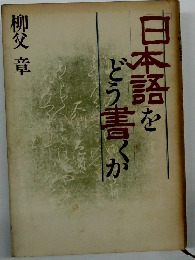 日本語を
どう書くか
柳父 章